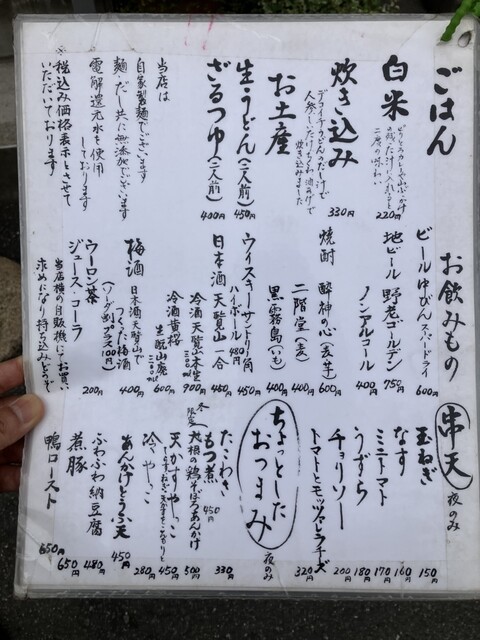 ごはん
白米
220円
炊き込み
330円
お土産
生うどん(二人前) 450円
ざるつゆ(二人前) 400円
当店は
自家製麺でございます
麺・だし共に無添加でございます
電解還元水を使用
しております
※税込み価格表示とさせて
いただいております
お飲みもの
ビール中びん スーパードライ 600円
地ビール 野老ゴールデン 750円
ノンアルコール 400円
焼酎 酔神の心(麦・芋) 600円
二階堂(麦) 400円
黒霧島(いも) 400円
ウィスキー サントリー角
ハイボール 480円
日本酒 天覧山 一合 450円
冷酒 天覧山本生 900円
冷酒 黄桜 生酛山廃 300ml 600円
梅酒 日本酒天覧山で
つくった梅酒 400円
(ソーダ割プラス100円)
ウーロン茶 200円
ジュース・コーラ
当店横の自販機にてお買い
求めになり持ち込みどうぞ
串天 夜のみ
玉ねぎ 150円
なす 160円
ミニトマト 170円
うずら 180円
チョリソー 200円
トマトとモッツァレラチーズ 320円
ちょっとした
おつまみ
夜のみ
たこわさ 330円
もつ煮 450円
冬限定
大根の鶏そぼろあんかけ 500円
天かすやっこ 450円
冷やっこ 280円
あんかけとうふ天 450円
ふわふわ納豆腐 480円
煮豚 650円
鴨ロースト 650円